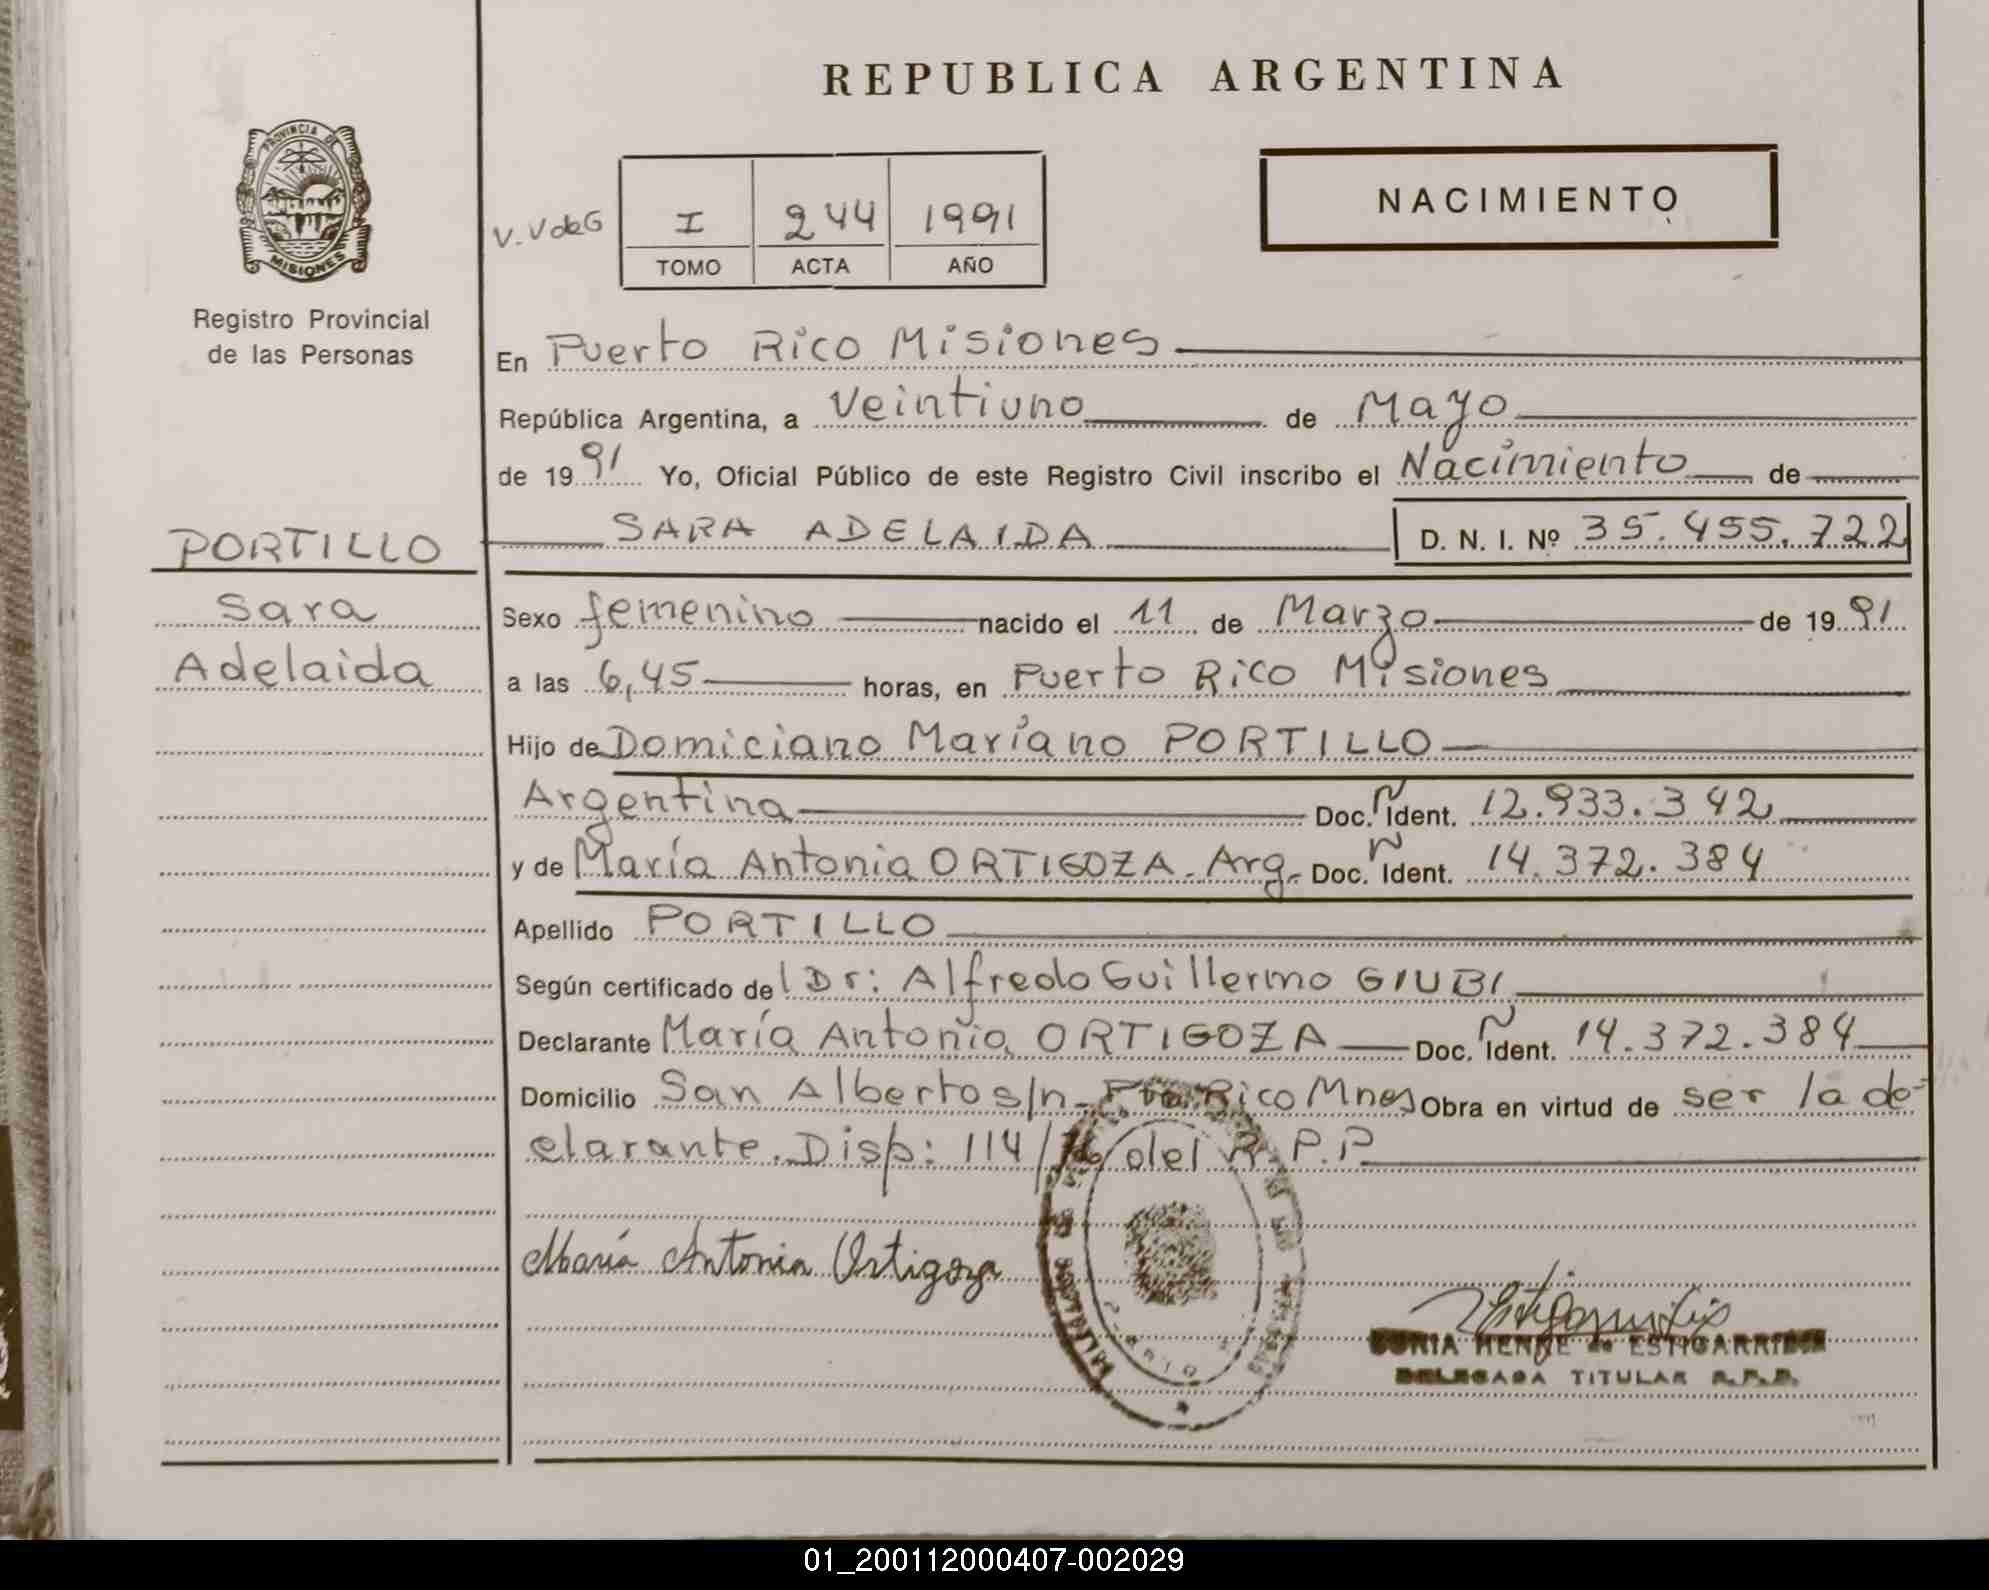 REPUBLICA ARGENTINA
PROVINCIA DE
MISIONES
Registro Provincial
de las Personas
V. V de G
I 244 1991
TOMO ACTA AÑO
NACIMIENTO
En Puerto Rico Misiones
República Argentina, a Veintiuno de Mayo
de 1991 Yo, Oficial Público de este Registro Civil inscribo el Nacimiento de
PORTILLO
SARA ADELAIDA D. N. I. Nº 35.455.722
Sara
Adelaida
Sexo femenino nacido el 11 de Marzo de 1991
a las 6,45 horas, en Puerto Rico Misiones
Hijo de Domiciano Mariano PORTILLO
Argentina Doc. Ñ Ident. 12.933.342
y de María Antonia ORTIGOZA. Arg. Doc. Ñ Ident. 14.372.384
Apellido PORTILLO
Según certificado del Dr: Alfredo Guillermo GIUBI
Declarante María Antonia ORTIGOZA Doc. Ñ Ident. 14.372.384
Domicilio San Alberto s/n. Pto Rico Mnes Obra en virtud de ser la de-
clarante. Disp: 114/76 del R.P.P
María Antonia Ortigoza
HENKE de ESTIGARRIBIA
DELEGADA TITULAR R.P.P.
01_200112000407-002029